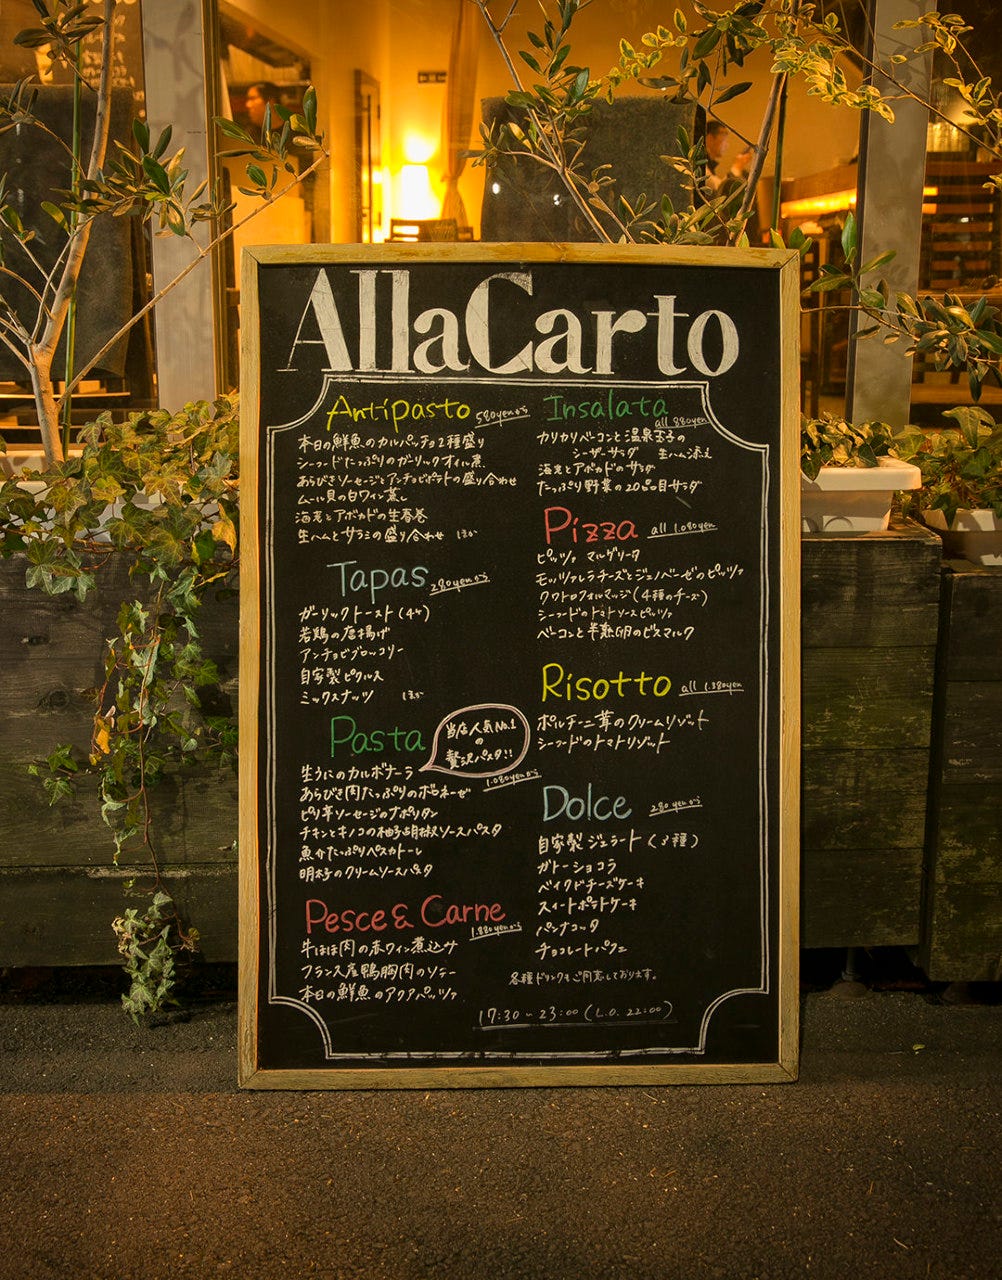 AllaCarto
Antipasto 580yenから
本日の鮮魚のカルパッチョ2種盛り
シーフードたっぷりのガーリックオイル煮
あらびきソーセージとアンチョビポテトの盛り合わせ
ムール貝の白ワイン蒸し
海老とアボカドの生春巻
生ハムとサラミの盛り合わせ ほか
Tapas 280yenから
ガーリックトースト(4ケ)
若鶏の唐揚げ
アンチョビブロッコリー
自家製ピクルス
ミックスナッツ ほか
Pasta
当店人気No.1
の
贅沢パスタ!!
1.080yenから
生うにのカルボナーラ
あらびき肉たっぷりのボロネーゼ
ピリ辛ソーセージのナポリタン
チキンとキノコの柚子胡椒ソースパスタ
魚介たっぷりペスカトーレ
明太子のクリームソースパスタ
Pesce & Carne
1.880yenから
牛ほほ肉の赤ワイン煮込み
フランス産鴨胸肉のソテー
本日の鮮魚のアクアパッツァ
Insalata
all 880yen
カリカリベーコンと温泉玉子の
シーザーサラダ 生ハム添え
海老とアボカドのサラダ
たっぷり野菜の20品目サラダ
Pizza all 1.080yen
ピッツァ マルゲリータ
モッツァレラチーズとジェノベーゼのピッツァ
クワトロフォルマッジ(4種のチーズ)
シーフードのトマトソースピッツァ
ベーコンと半熟卵のビスマルク
Risotto all 1.380yen
ポルチーニ茸のクリームリゾット
シーフードのトマトリゾット
Dolce 280yenから
自家製ジェラート(3種)
ガトーショコラ
ベイクドチーズケーキ
スイートポテトケーキ
パンナコッタ
チョコレートパフェ
各種ドリンクもご用意しております。
17:30~23:00(L.O. 22:00)